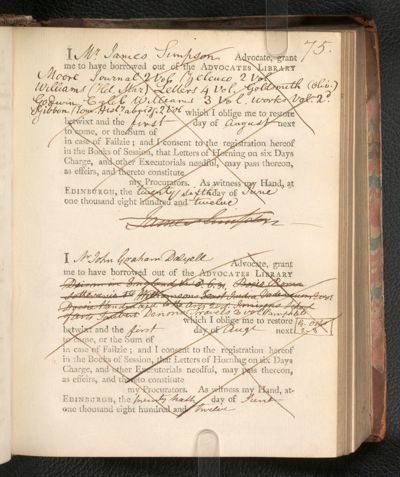 75.
I Mr James Simpson Advocate, grant
me to have borrowed out of the ADVOCATES LIBRARY
Moore Journal 2 Vols Zeluco 2 Vol
Williams (Hel. Mar) Letters 4 Vol, Goldsmith (Oliv.)
Godwin Caleb Williams 3 Vol. works Vol. 2d
Gibbon Rom. Hist. abridg. 2 Vol which I oblige me to restore
betwixt and the first day of August next
to come, or the Sum of
in case of Failzie; and I consent to the registration hereof
in the Books of Session, that Letters of Horning on six Days
Charge, and other Executorials needful, may pass thereon,
as effeirs, and thereto constitute
my Procurators. As witness my Hand, at
EDINBURGH, the twenty sixth day of June
one thousand eight hundred and twelve
James Simpson
I Mr John Graham Dalyell Advocate, grant
me to have borrowed out of the ADVOCATES LIBRARY
in England
Denons Travels 3 vol
which I oblige me to restore
betwixt and the first day of Augt next
to come, or the Sum of
in case of Failzie; and I consent to the registration hereof
in the Books of Session, that Letters of Horning on six Days
Charge, and other Executorials needful, may pass thereon,
as effeirs, and thereto constitute
my Procurators. As witness my Hand, at
EDINBURGH, the day of June
one thousand eight hundred and twelve